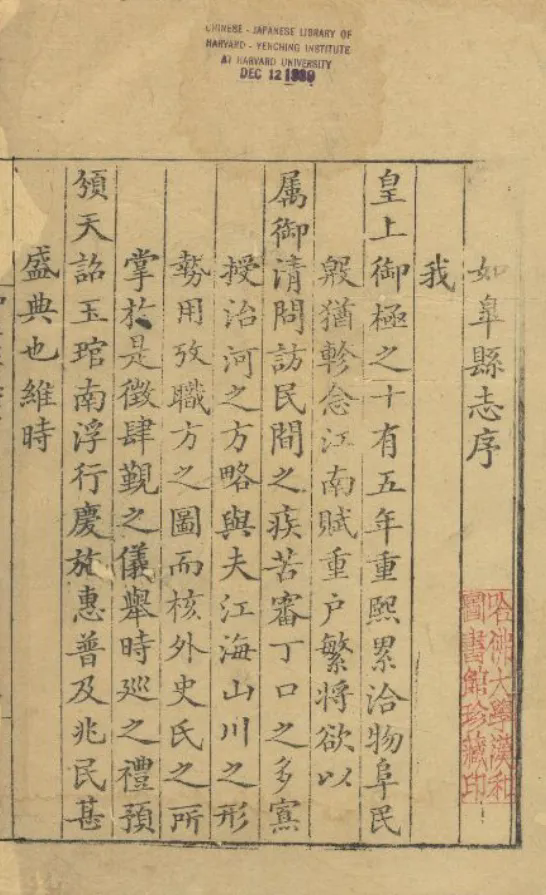 CHINESE - JAPANESE LIBRARY OF
HARVARD - YENCHING INSTITUTE
AT HARVARD UNIVERSITY
DEC 12 1939
如皋縣志序
我
皇上御極之十有五年重熙累洽物阜民
殷猶軫念江南賦重户繁將欲以
属御清問訪民間之疾苦審丁口之多寡
授治河之方略與夫江海山川之形
勢用攷職方之圖而核外史氏之所
掌於是徵肆覲之儀舉時廵之禮預
頒天詔玉琯南浮行慶施惠普及兆民甚
盛典也維時
哈佛大學漢和
圖書館珍藏印